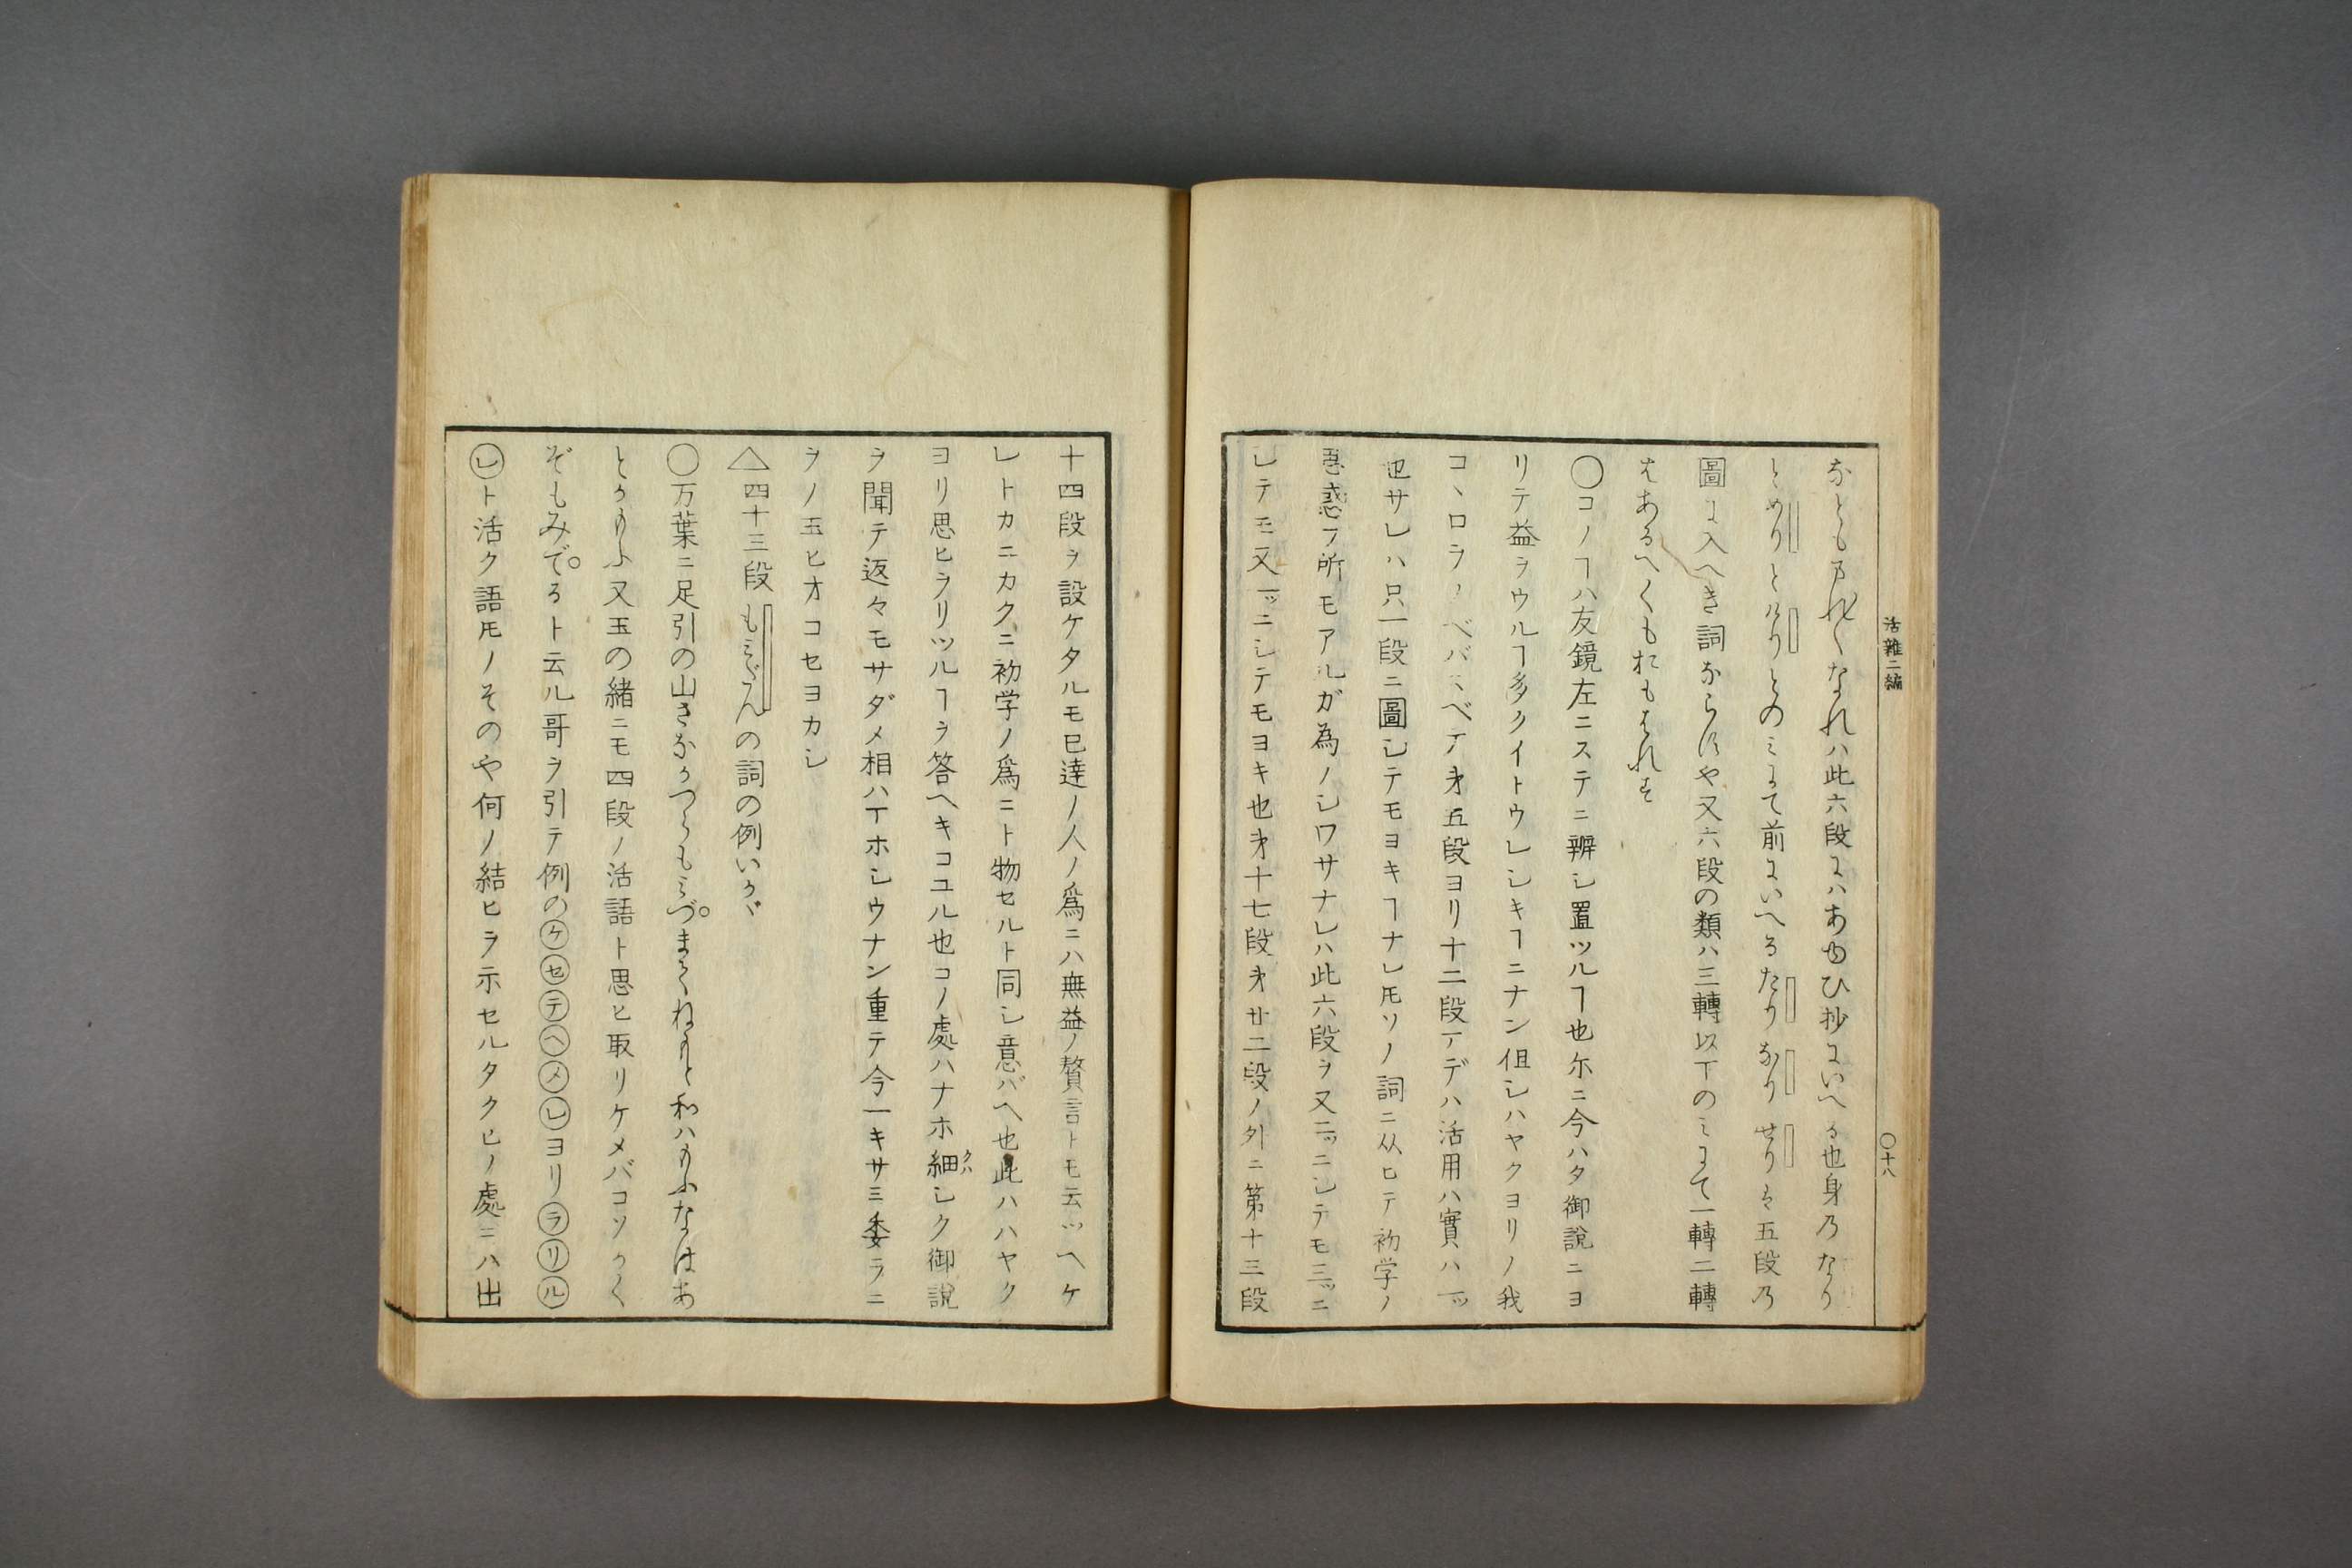 活雜二編
〇十八
なともかれくなれハ此六段にハあゆひ抄にいへる也身乃なり
とめりとけりとのミにて前にいへるたりなりせりを五段乃
圖に入へき詞ならすや又六段の類ハ三轉以下のミにて一轉二轉
はあるへくもおもはれす
〇コノヿハ友鏡左ニステニ辨シ置ツルヿ也尓ニ今ハタ御說ニヨ
リテ益ヲウルヿ多クイトウレシキヿニナン但シハヤクヨリノ我
コヽロヲノベバスベテ㐧五段ヨリ十二段マデハ活用ハ實ハ一ッ
也サレハ只一段ニ圖シテモヨキヿナレ𪜈ソノ詞ニ从ヒテ初学ノ
思惑フ所モアルガ為ノシワサナレハ此六段ヲ又二ッニシテモ三ッニ
シテモ又一ッニシテモヨキ也㐧十七段㐧廿二段ノ外ニ第十三段
十四段ヲ設ケタルモ已達ノ人ノ爲ニハ無益ノ贅言トモ云ツヘケ
レトカニカクニ初学ノ爲ニト物セルト同シ意バヘ也此ハハヤク
ヨリ思ヒヲリツルヿヲ答ヘキコユル也コノ處ハナホ細クハシク御說
ヲ聞テ返々モサダメ相ハマホシウナン重テ今一キサミ委ラニ
ヲノ玉ヒオコセヨカシ
△四十三段もミぢんの詞の例いかゞ
〇万葉ニ足引の山さなかつらもミづまてねと和ハなはあ
とかりふ又玉の緒ニモ四段ノ活語ト思ヒ取リケメバコソかく
ぞもみでるト云ル哥ヲ引テ例の㋘㋝㋢㋬㋱㋹ヨリ㋶㋷㋸
㋹ト活ク語𪜈ノそのや何ノ結ヒヲ示セルタクヒノ處ニハ出